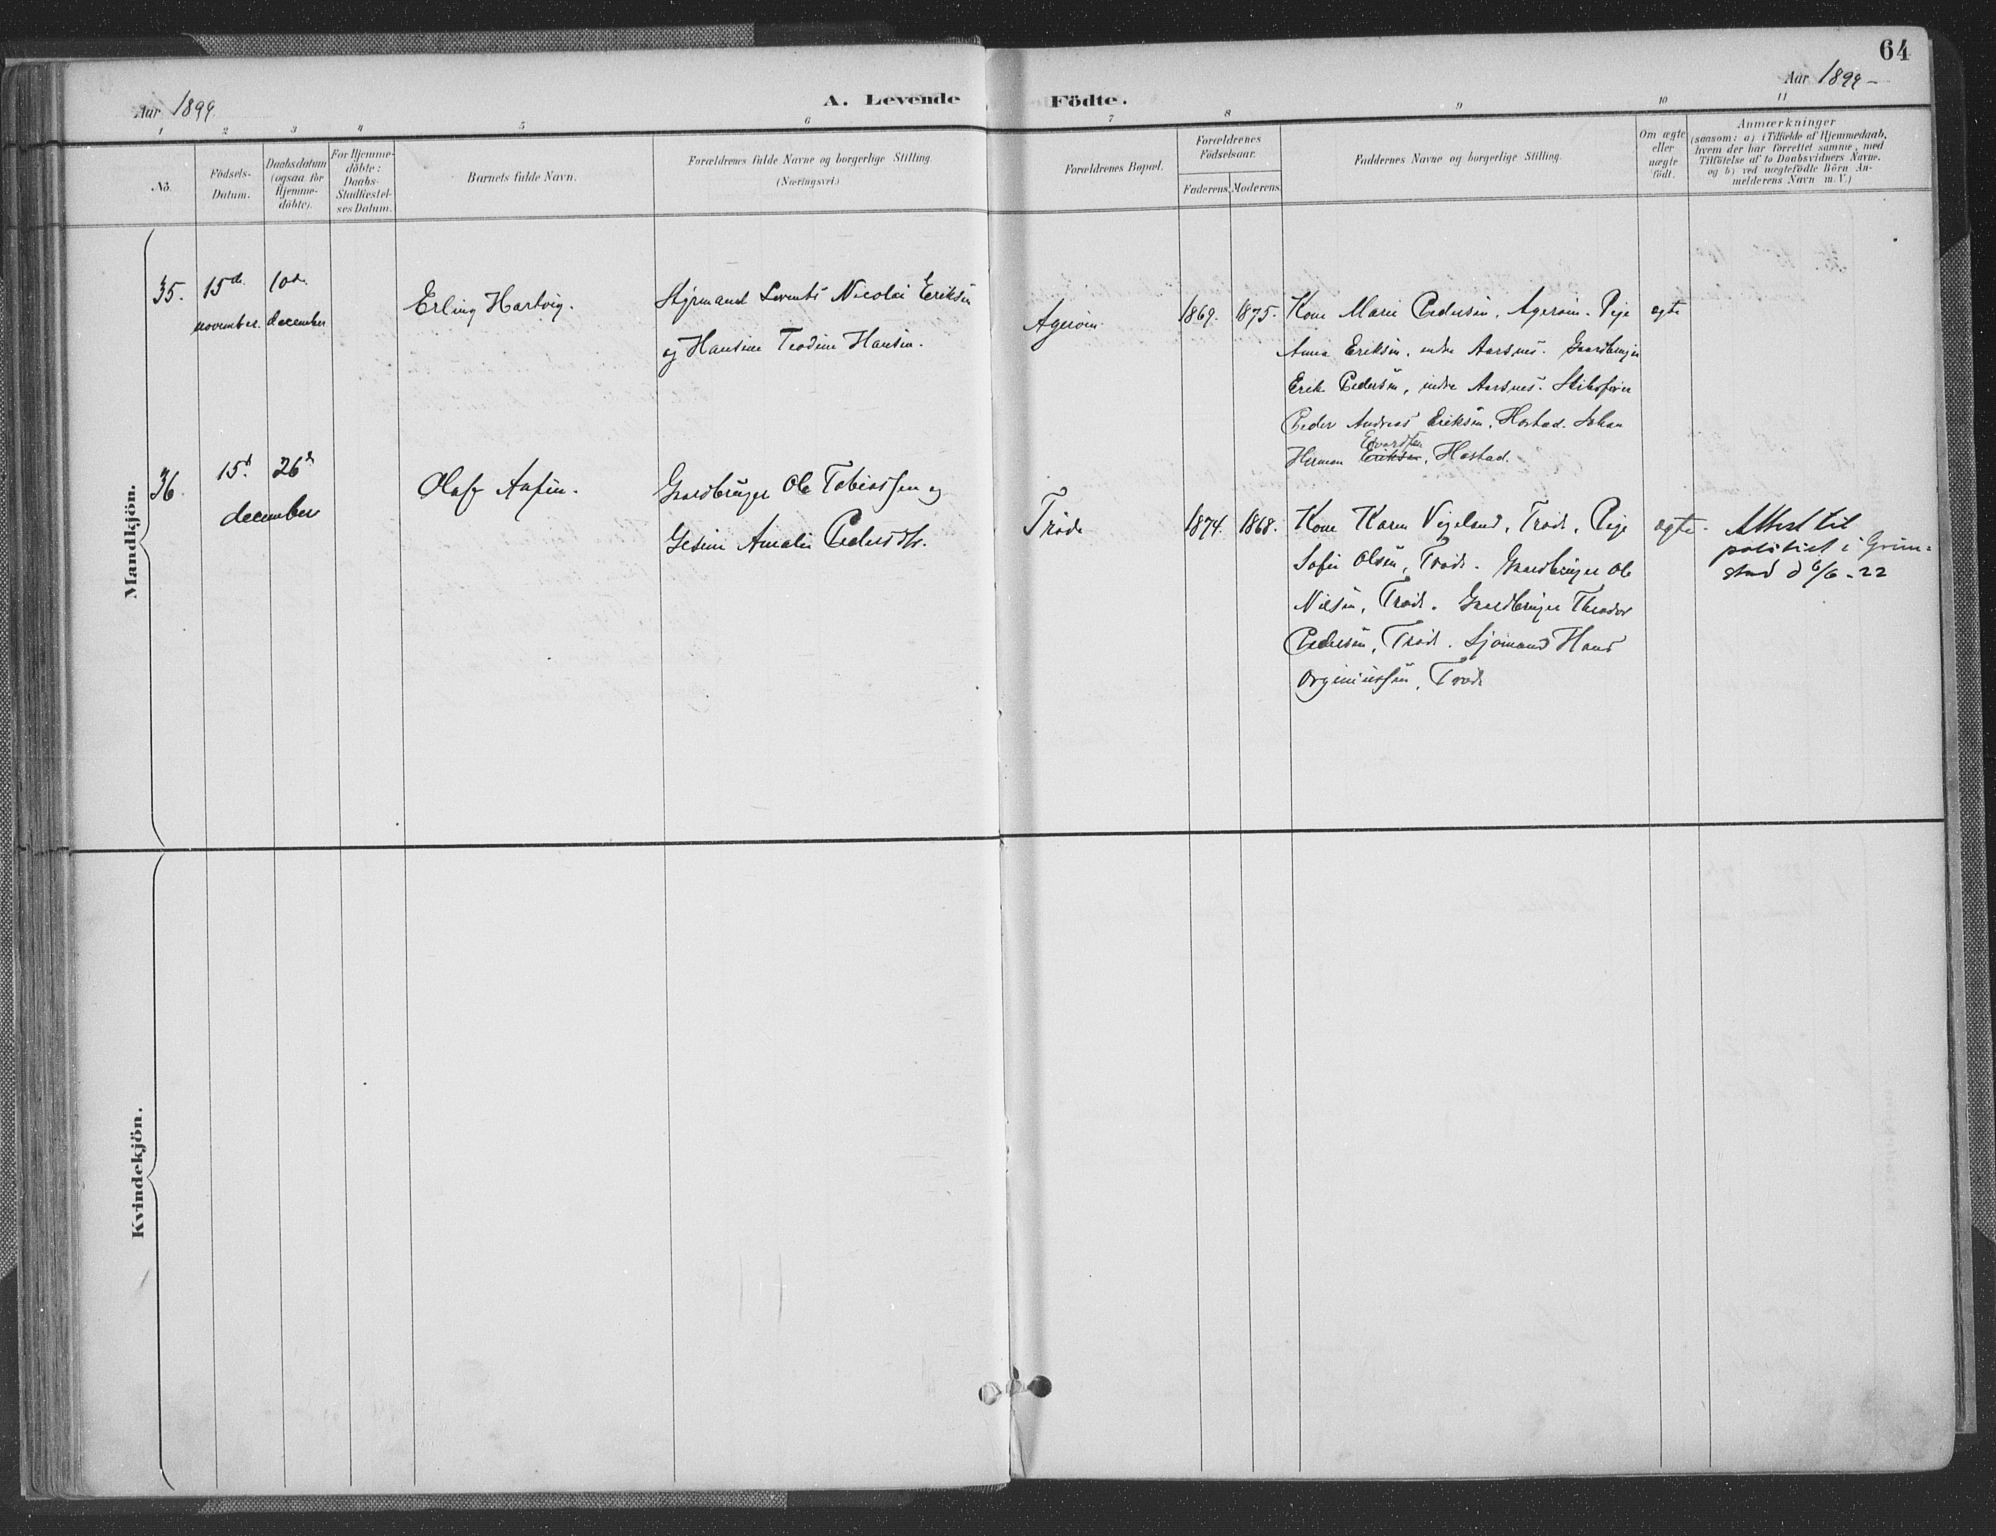 64
Aar 1899.
A. Levende Födte.
Aar 1899 -
1 2 3 4 5 6 7 8 9 10 11
No.
Födsels-
Datum.
Daabsdatum
(ogsaa for
Hjemme-
döbte).
For Hjemme-
döbte:
Daabs-
Stadfæstel-
ses Datum.
Barnets fulde Navn.
Forældrenes fulde Navne og borgerlige Stilling
(Næringsvei.)
Forældrenes Bopæl.
Forældrenes
Födselsaar.
Faderens. Moderens.
Faddernes Navne og borgerlige Stilling.
Om ægte
eller
uægte
født.
Anmærkninger
(saasom: a) i Tilfælde af Hjemmedaab,
hvem der har forrettet samme, med
Tilföielse af to Daabsvidners Navne.
og b) ved uægtefödte Börn An-
melderens Navn m. V.)
Mandkjön.
35.
15de
november.
10de
december
Erling Hartvig.
Styrmand Nicolai Eriksen
og Hansine Hansen.
Agerøen
1869. 1875.
Kone Marie Pedersen, Agerøen. Pige
Anna Eriksen, indre Aarsnes. Gaardbruger
Erik Pedersen, indre Aarsnes.
Peder Andreas Eriksen, Høstad. Johan
Herman Eriksen Edvardsen, Høstad.
ægte
36.
15d 26d
december
Olaf
Gaardbruger Ole Tobiassen og
Gesine Amalie Pedersdtr.
Trøde
1874. 1868.
Kone Karen Vigeland, Trøde, Pige
Sofie Olsen, Trøde. Gaardbruger Ole
Nilsen, Trøde. Gaardbruger Theodor
Pedersen, Trøde. Sjømand Hans
Trøde
ægte.
Attest til
politiet i Grim=
stad d 6/6 - 22
Kvindekjön.